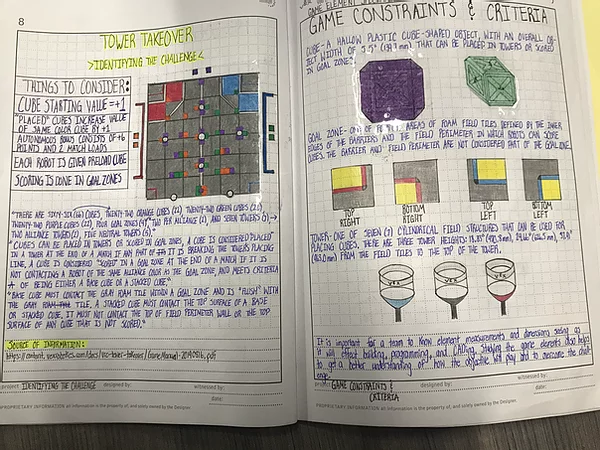 8
TOWER TAKEOVER
>IDENTIFYING THE CHALLENGE<
THINGS TO CONSIDER:
CUBE STARTING VALUE=+1
"PLACED" CUBES INCREASE VALUE
OF SAME COLOR CUBE BY +1
AUTONOMOUS BONUS CONSISTS OF +6
POINTS AND 2 MATCH LOADS
EACH ROBOT IS GIVEN PRELOAD CUBE
SCORING IS DONE IN GOAL ZONES
"THERE ARE SIXTY-SIX (66) CUBES, TWENTY-TWO ORANGE CUBES (22), TWENTY-TWO GREEN CUBES (22),
TWENTY-TWO PURPLE CUBES (22), FOUR GOAL ZONES (4), TWO PER ALLIANCE (2), AND SEVEN TOWERS (7)→
TWO ALLIANCE (2), FIVE NEUTRAL TOWERS (5)."
"CUBES CAN BE PLACED IN TOWERS OR SCORED IN GOAL ZONES. A CUBE IS CONSIDERED "PLACED"
IN A TOWER AT THE END OF A MATCH IF ANY PART OF IT IS BREAKING THE TOWERS PLACING
LINE. A CUBE IS CONSIDERED "SCORED" IN A GOAL ZONE AT THE END OF A MATCH IF IT IS
NOT CONTACTING A ROBOT OF THE SAME ALLIANCE COLOR AS THE GOAL ZONE, AND MEETS CRITERIA
OF BEING EITHER A BASE CUBE OR A STACKED CUBE."
"BASE CUBE MUST CONTACT THE GRAY FOAM TILE WITHIN A GOAL ZONE AND IS "FLUSH" WITH
THE GRAY FOAM TILE. A STACKED CUBE MUST CONTACT THE TOP SURFACE OF A BASE
OR STACKED CUBE. IT MUST NOT CONTACT THE TOP OF FIELD PERIMETER WALL OR THE TOP
SURFACE OF ANY CUBE THAT IS NOT SCORED."
SOURCE OF INFORMATION:
project IDENTIFYING THE CHALLENGE designed by: witnessed by:
date:
PROPRIETARY INFORMATION all information is the property of, and solely owned by the Designer.
GAME CONSTRAINTS & CRITERIA
CUBE- A HALLOW PLASTIC CUBE-SHAPED OBJECT, WITH AN OVERALL OB-
JECT WIDTH OF 5.5" THAT CAN BE PLACED IN TOWERS OR SCORED
IN GOAL ZONES.
GOAL ZONE- ONE OF AREAS OF FOAM FIELD TILES DEFINED BY THE INNER
EDGES OF THE BARRIERS AND THE FIELD PERIMETER IN WHICH ROBOTS CAN SCORE
CUBES. THE BARRIER AND FIELD PERIMETER ARE NOT CONSIDERED PART OF THE GOAL ZONE.
TOP RIGHT
BOTTOM RIGHT
TOP LEFT
BOTTOM LEFT
TOWER- ONE OF SEVEN (7) CYLINDRICAL FIELD STRUCTURES THAT CAN BE USED FOR
PLACING CUBES. THERE ARE THREE TOWER HEIGHTS:
FROM THE FIELD TILES TO THE TOP OF THE TOWER.
It is important for a team to know element measurements and dimensions seeing as
it will effect building, programming, and CADing. Studying the game elements also helps
to get a better understanding of how the objective will play and to overcome the chall-
enge.
project GAME CONSTRAINTS & designed by: witnessed by:
CRITERIA date:
PROPRIETARY INFORMATION all information is the property of, and solely owned by the Designer.